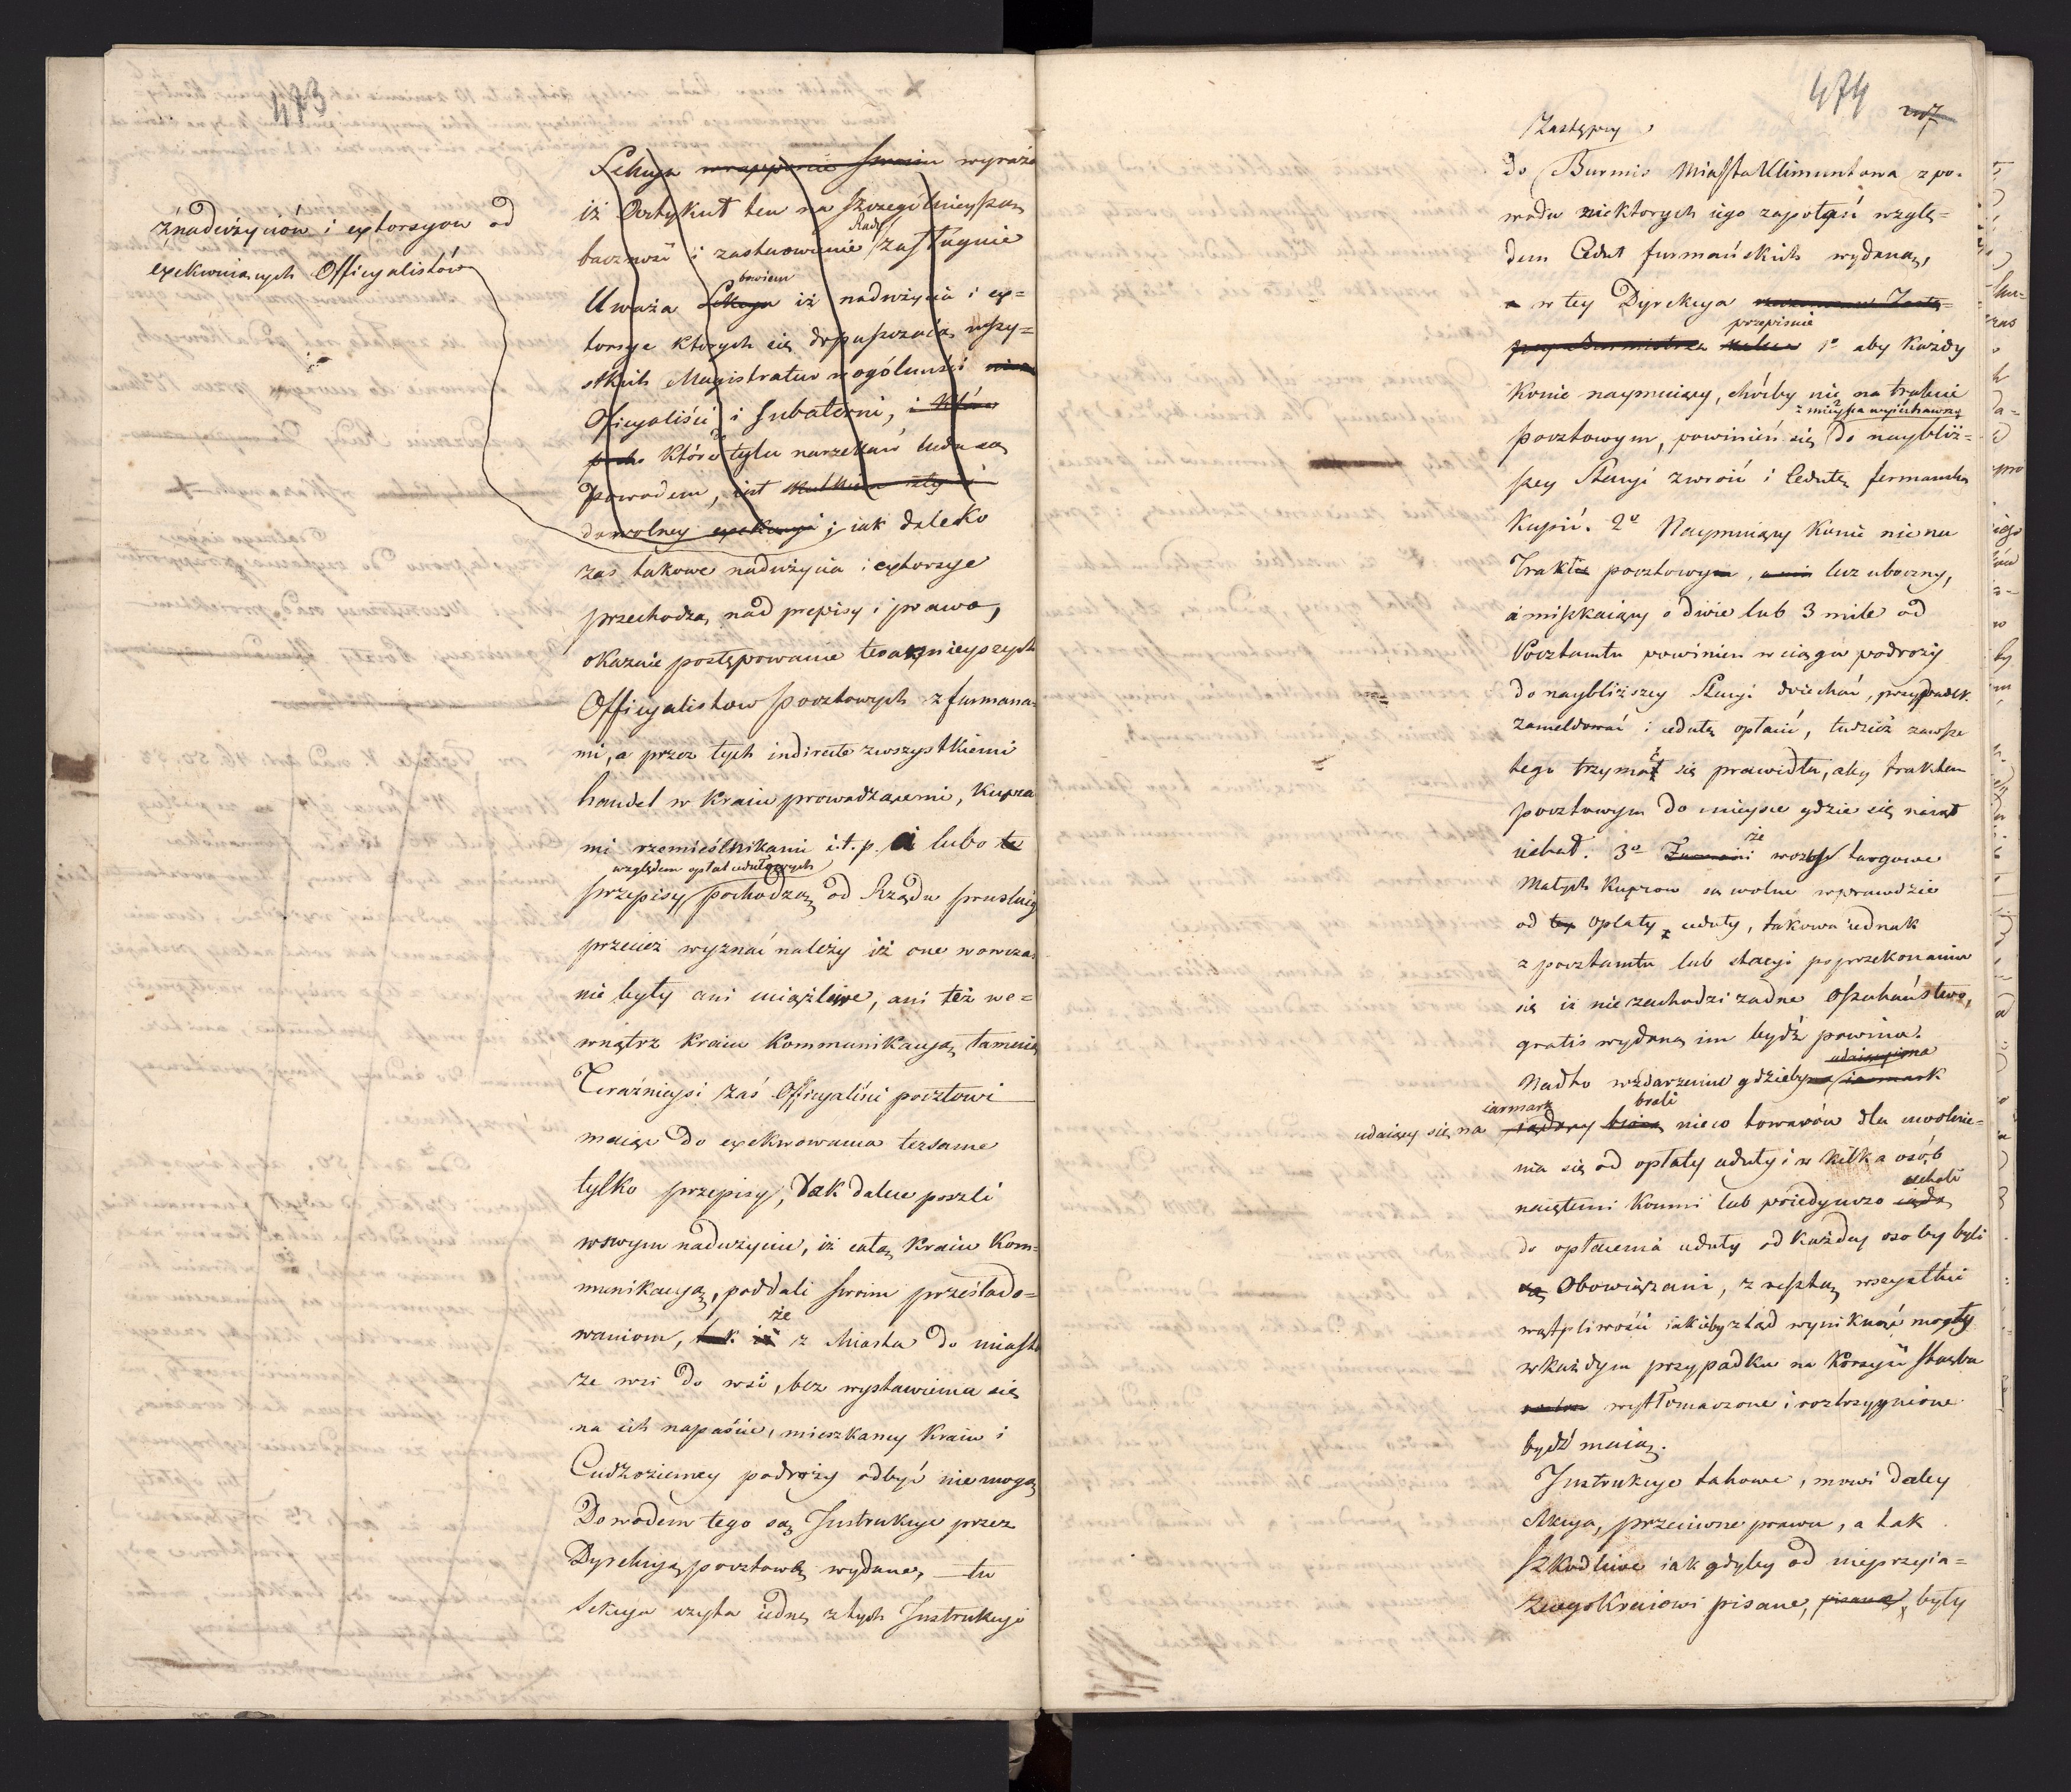 473
z nadużyciów i extorsyow od
exekwuiących Officyalistów
Sekcya w rapporcie swoim wyraża
iż Artykuł ten na szczególnieyszą
baczność i zastanowienie Rady zasługuie
Uważa Sekcya bowiem iż nadużycia i ex=
torsye których się dopuszczaią wszy=
stkich Magistratur w ogólności
Oficyaliści i subalterni, i które
które do tylu narzekań ludu są
powodem, iest skutkiem złey i
dowolney exekucyi; iak daleko
zas takowe nadużycia i extorsye
przechodzą nad przepisy i prawo,
okazuie postępowanie teraznieyszych
Officyalistow pocztowych z furmana-
mi, a przez tych indirecte z wszystkiemi
handel w kraiu prowadzącemi, kupca
mi rzemieślnikami i.t.p. i lubo te
względem opłat cedułowych
przepisy pochodzą od Rządu pruskieg
przecież wyznać należy iż one wowczas
nie były ani uciążliwe, ani też we=
wnątrz kraiu kommunikacyą tamuią
Teraźnieysi zaś Officyaliści pocztowi
maiąc do exekwowania tezsame
tylko przepisy, tak dalece poszli
w swym nadużyciu, iż całą kraiu kom=
munikacyą, poddali swoim prześlado=
waniom, tak iż że z Miasta do miasta
ze wsi do wsi, bez wystawienia się
na ich napaście, mieszkancy kraiu i
Cudzoziemcy podroży odbyć nie mogą
Dowodem tego są Instrukcye przez
Dyrekcyą pocztową wydane, — tu
Sekcya czyta iedną z tych Instrukcyi
474
Zastępcy
do Burmis Miasta Klimuntowa z po-
wodu niektorych iego zapytań wzglę=
dem Cedut furmańskich wydaną,
w tey Dyrekcya Zastę=
pcy Burmistrza przepisuie 1o aby każdy
konie naymuiący, choćby nie na trakcie
z mieysca wyiechawszy
pocztowym, powinień się do naybliż=
szey Stacyi zwroić i Cedułę furmanską
kupić. 2o Naymuiący konie nie na
Trakcie pocztowym, lecz uboczny,
a miszkaiący o dwie lub 3 mile od
Pocztamtu powinien w ciągu podroży
do naybliższey Stacyi dziechać,
zameldować i cedułę opłacić, tudzież zawsze
tego trzymać się prawidła, aby traktem
pocztowym do mieysca gdzie się naiął
iechał. 3o że wozy targowe
Małych kupcow są wolne wprawdzie
od opłaty ceduły, takowa iednak
z pocztamtu lub stacyi po przekonaniu
się iż nie zachodzi żadne oszukaństwo,
gratis wydaną im bydź powina.
Nadto w zdarzeniu gdzieby iarmark
udaiący się na iarmark brali nieco towarów dla uwolnie=
nia się od opłaty ceduły i w kilka osób
naiętemi końmi lub poiedynczo iechali
do opłacenia ceduły od każdey osoby byli
Obowiązani, z resztą wszystkie
wątpliwości iakieby ztąd wyniknąć mogły
w każdym przypadku na korzyść Skarbu
wytłomaczone i roztrzygnione
bydź maią.
Instrukcye takowe, mowi daley
Sekcya, przeciwne prawu, a tak
szkodliwe iak gdyby od nieprzyia=
znego Kraiowi pisane, pisane, były